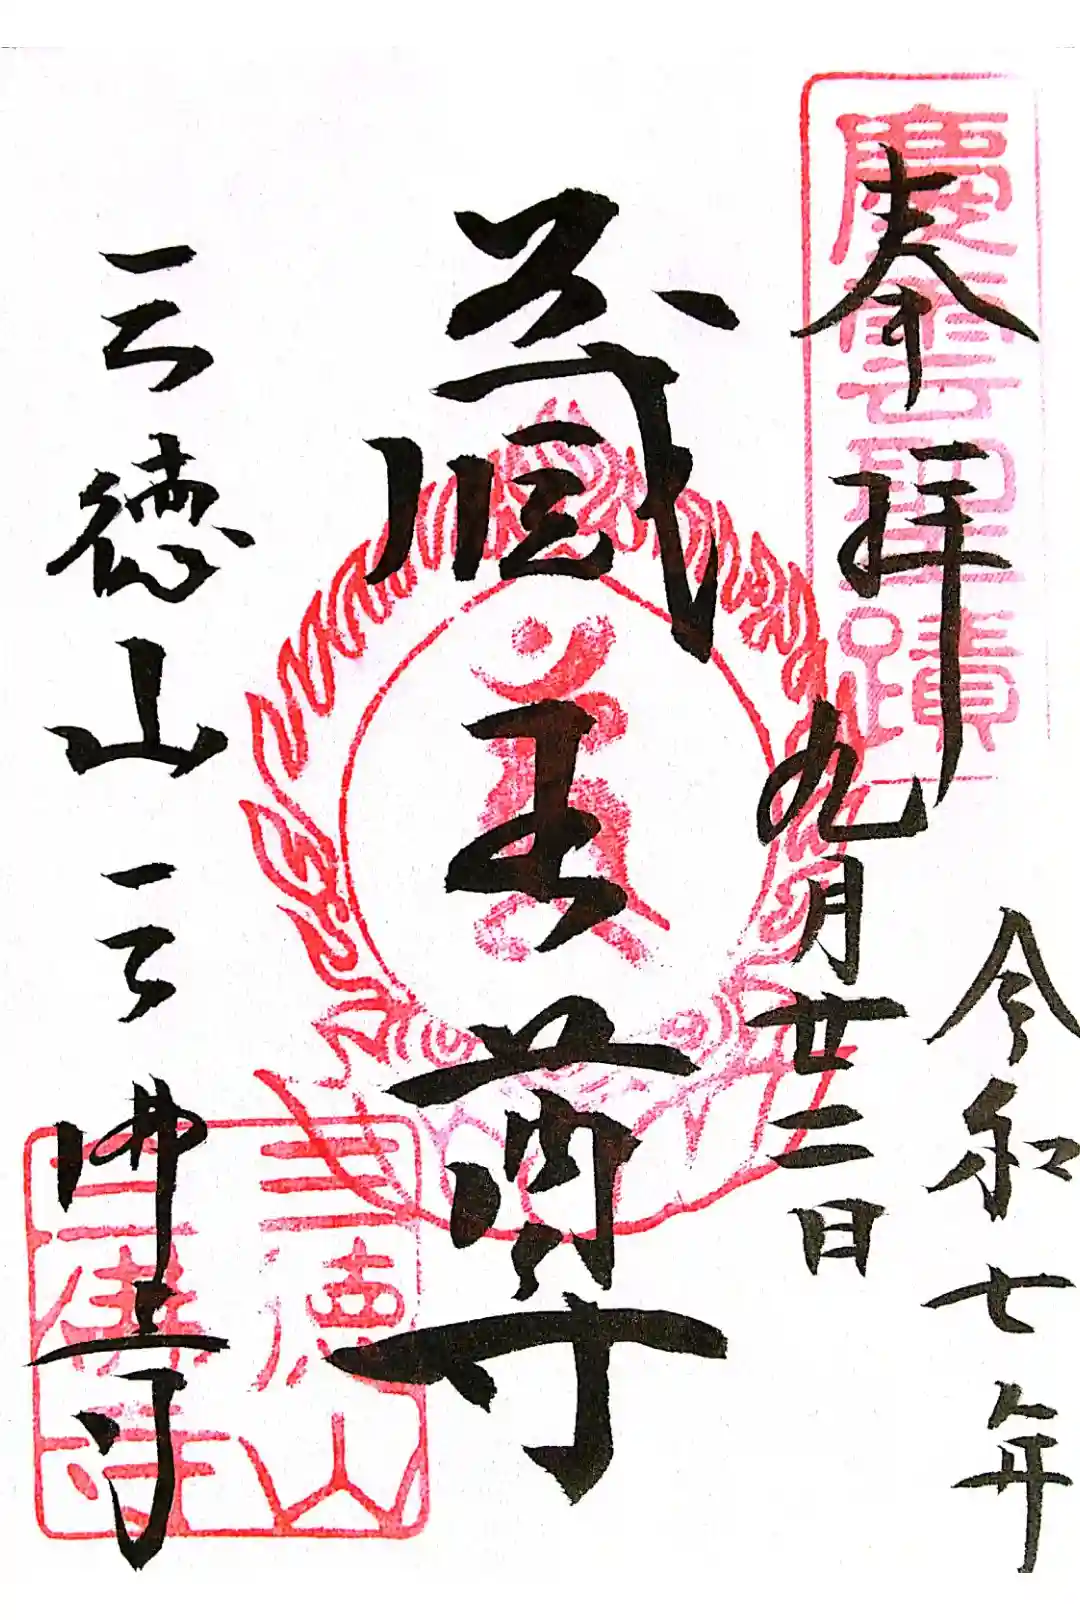 令和七年
奉拝
九月廿二日
慶雲聖蹟
蔵王尊
三徳山三佛寺
三徳山
三佛寺